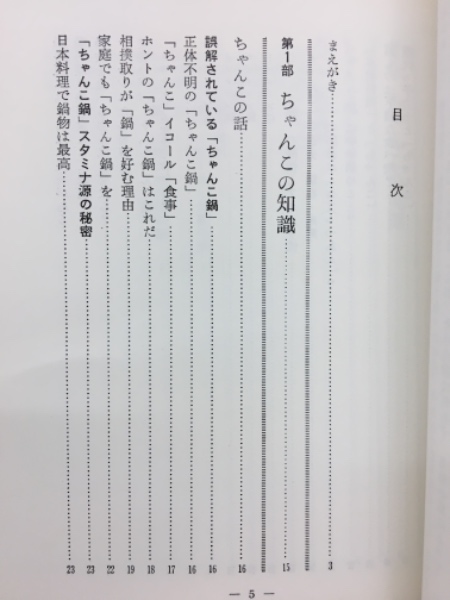 目次
まえがき……3
第1部 ちゃんこの知識……15
ちゃんこの話……16
誤解されている「ちゃんこ鍋」……16
正体不明の「ちゃんこ鍋」……16
「ちゃんこ」イコール「食事」……17
ホントの「ちゃんこ鍋」はこれだ……18
相撲取りが「鍋」を好む理由……19
家庭でも「ちゃんこ鍋」を……22
「ちゃんこ鍋」スタミナ源の秘密……23
日本料理で鍋物は最高……23
— 5 —